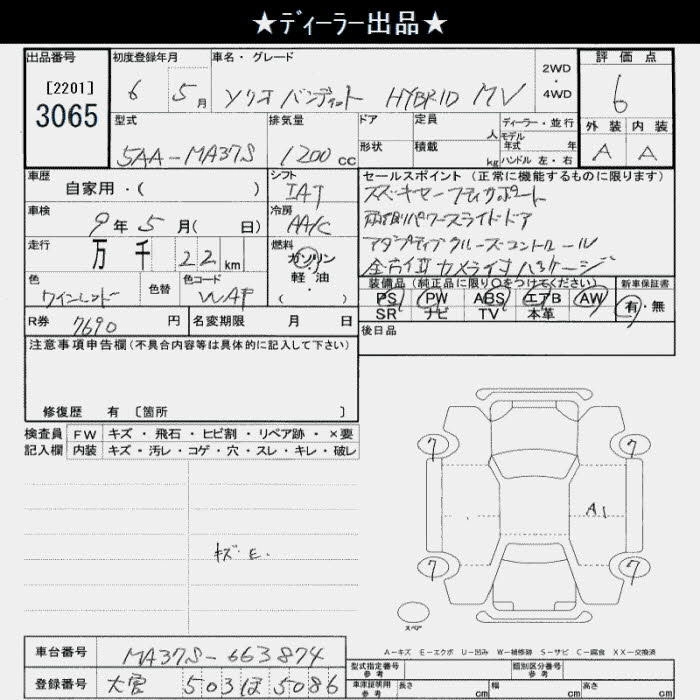 ★ディーラー出品★
出品番号
[2201]
3065
初度登録年月
6 5月
車名・グレード
ソリオ バンディット HYBRID MV
2WD
・
4WD
評価点
6
外装 内装
A A
型式
5AA-MA37S
排気量
1200cc
ドア
形状
定員
人
積載
kg
ディーラー・並行
モデル
年式 年
ハンドル 左・右
車歴
自家用・( )
シフト
IAT
車検
9年5月( 日)
冷房
AA/C
走行
万千 22km
燃料
ガソリン
軽油
・
( )
色
ワインレッド
色替
色コード
WAF
R券 7690円
名変期限 月 日
セールスポイント(正常に機能するものに限ります)
スズキセーフティサポート
両側パワースライドドア
アダプティブクルーズコントロール
全方位カメラ付パッケージ
装備品(純正品に限り○をつけてください)
PS PW ABS エアB AW
SR ナビ TV 本革
新車保証書
有・無
後日品
注意事項申告欄(不具合内容等は具体的に記入して下さい)
修復歴 有 [箇所 ]
検査員
記入欄
FW キズ・飛石・ヒビ割・リペア跡・×要
内装 キズ・汚レ・コゲ・穴・スレ・キレ・破レ
キズ・E.
7 7
A1
7 7
スペア
A-キズ E-エクボ U-凹み W-補修跡 S-サビ C-腐食 XX-交換済
車台番号 MA37S-663874
登録番号 大宮 503 ほ 5086
型式指定番号
参考
類別区分番号
参考
車庫証明用
参考
長さ cm
幅 cm
高さ cm